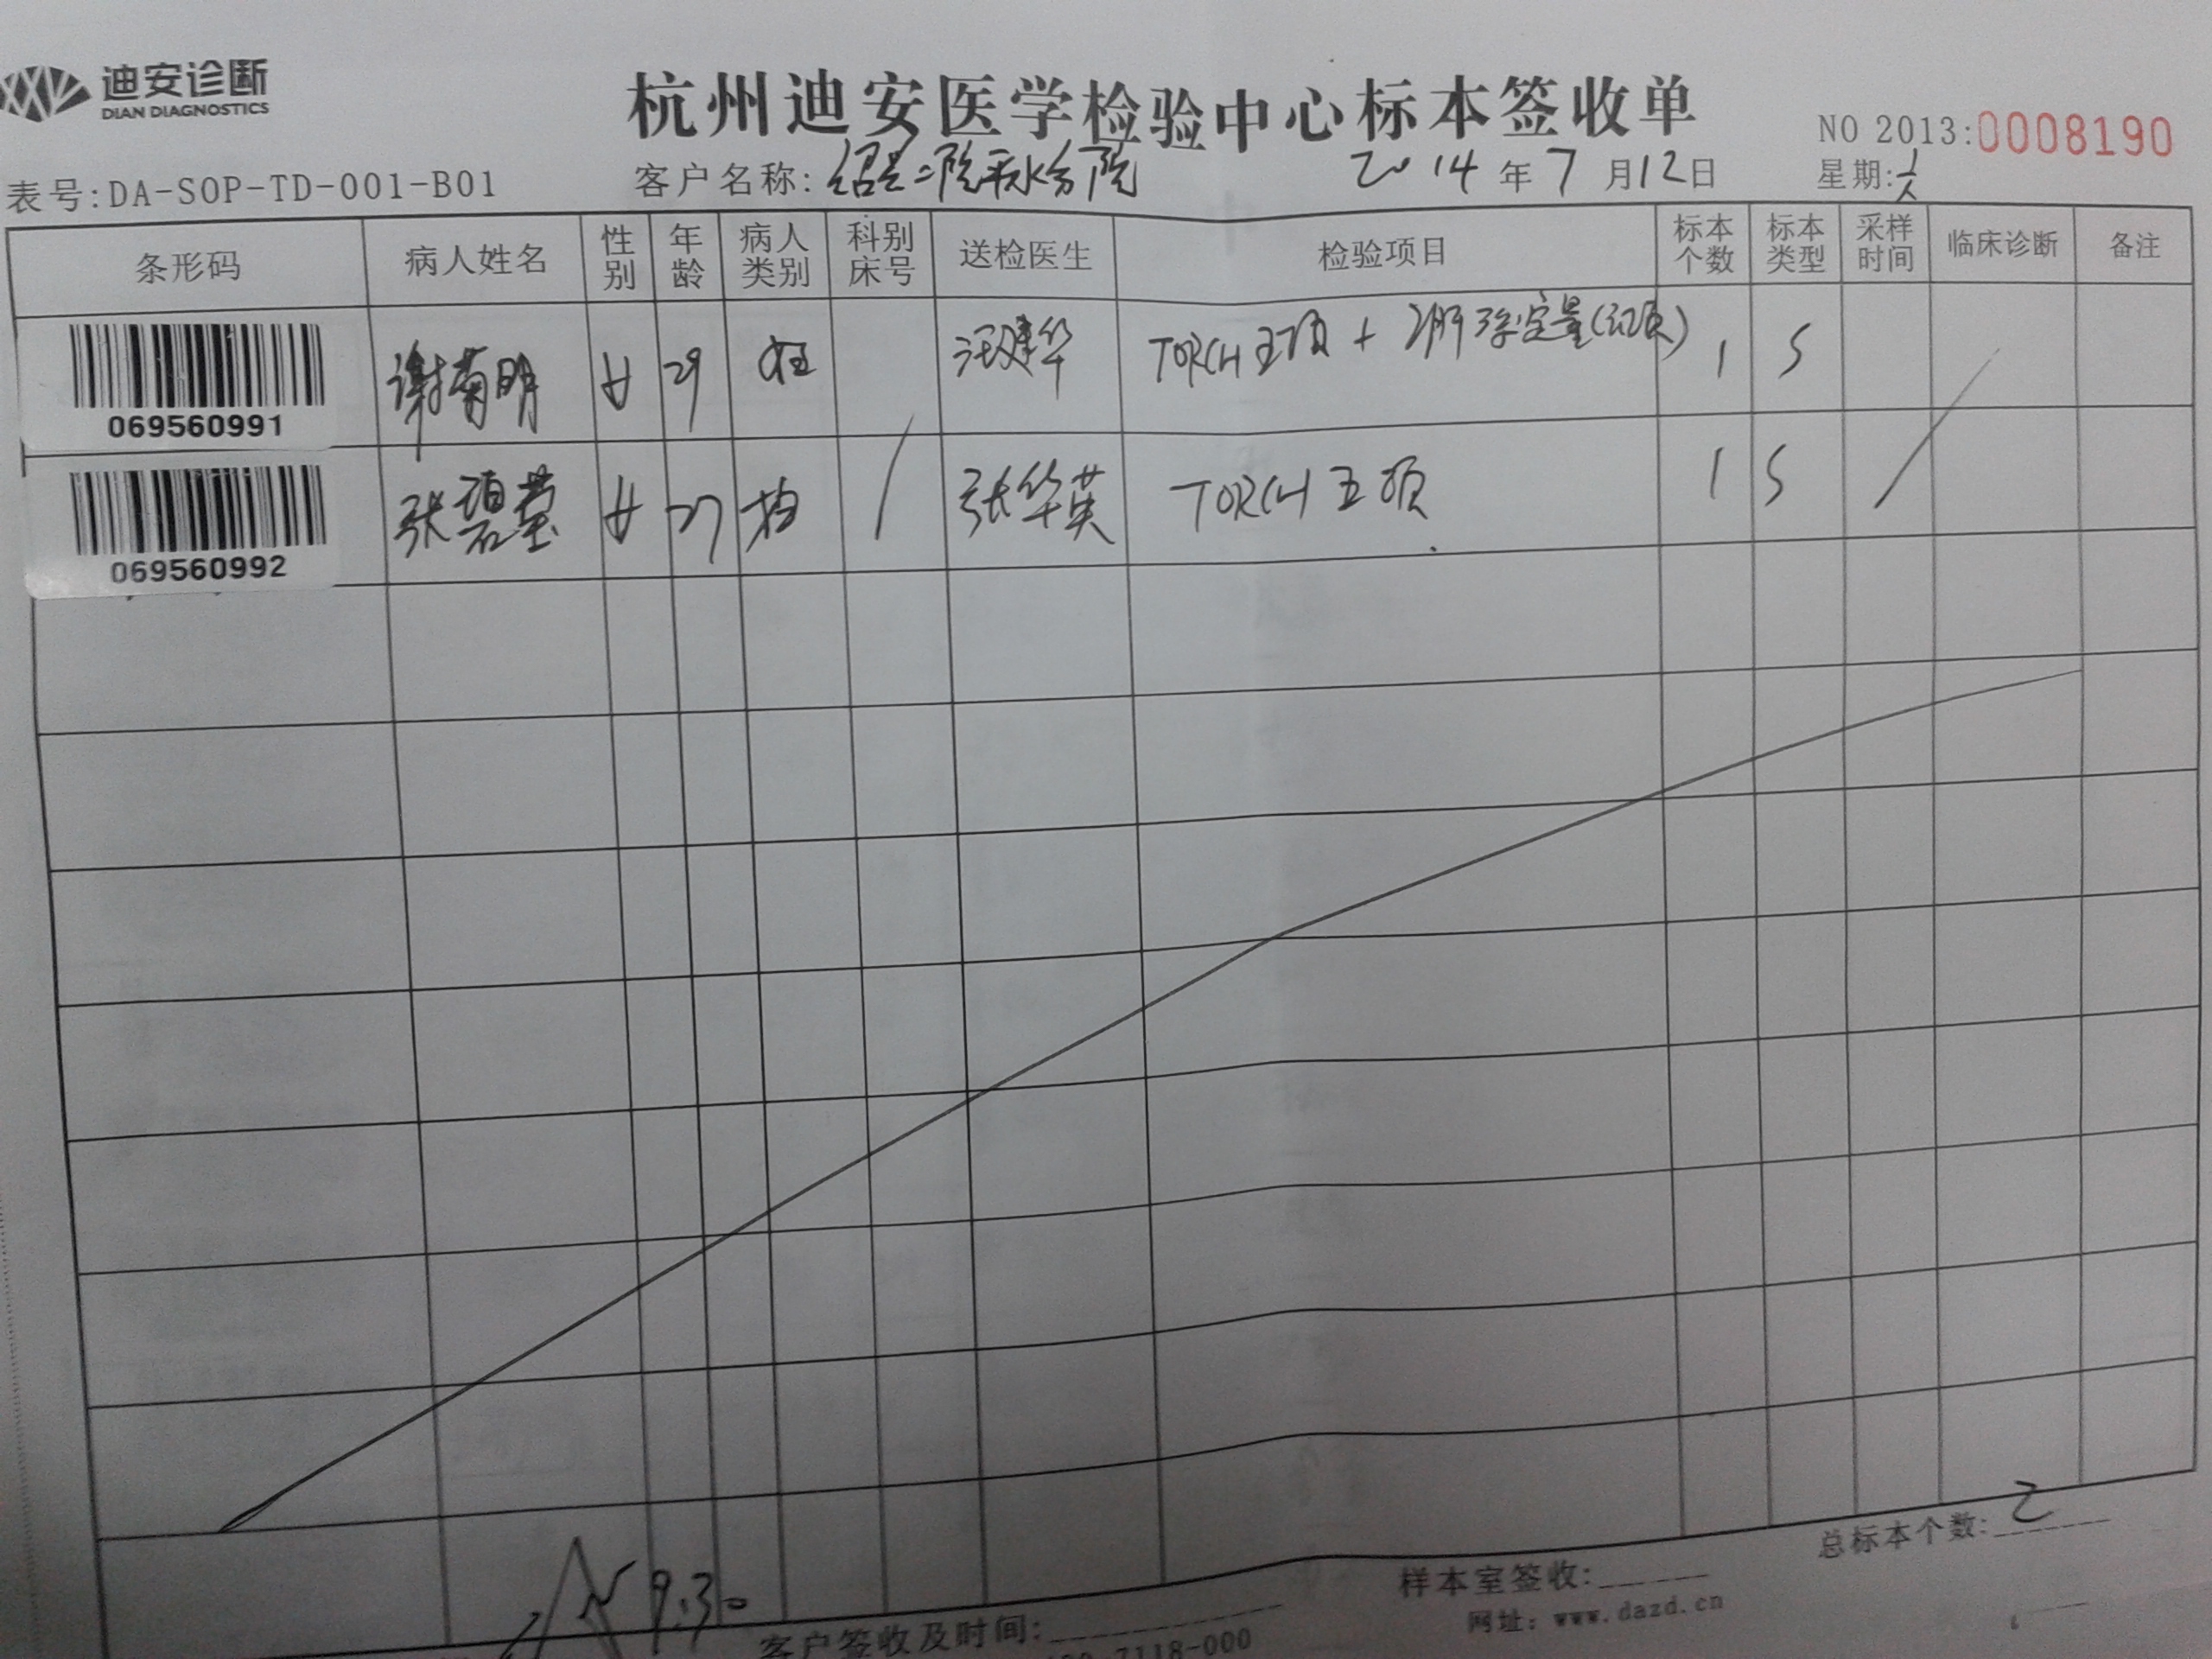 迪安诊断
DIAN DIAGNOSTICS
杭州迪安医学检验中心标本签收单
NO 2013:0008190
表号:DA-SOP-TD-001-B01 客户名称: 绍兴二院 分院 2014年7月12日 星期:六
条形码 病人姓名 性别 年龄 病人类别 科别床号 送检医生 检验项目 标本个数 标本类型 采样时间 临床诊断 备注
069560991 谢菊明 女 29 汪建华 TORCH 五项 + 定量 1 S
069560992 张碧莹 女 27 张华英 TORCH 五项 1 S
总标本个数: 2
9:30 客户签收及时间: 样本室签收:
7118-000 网址: www.dazd.cn